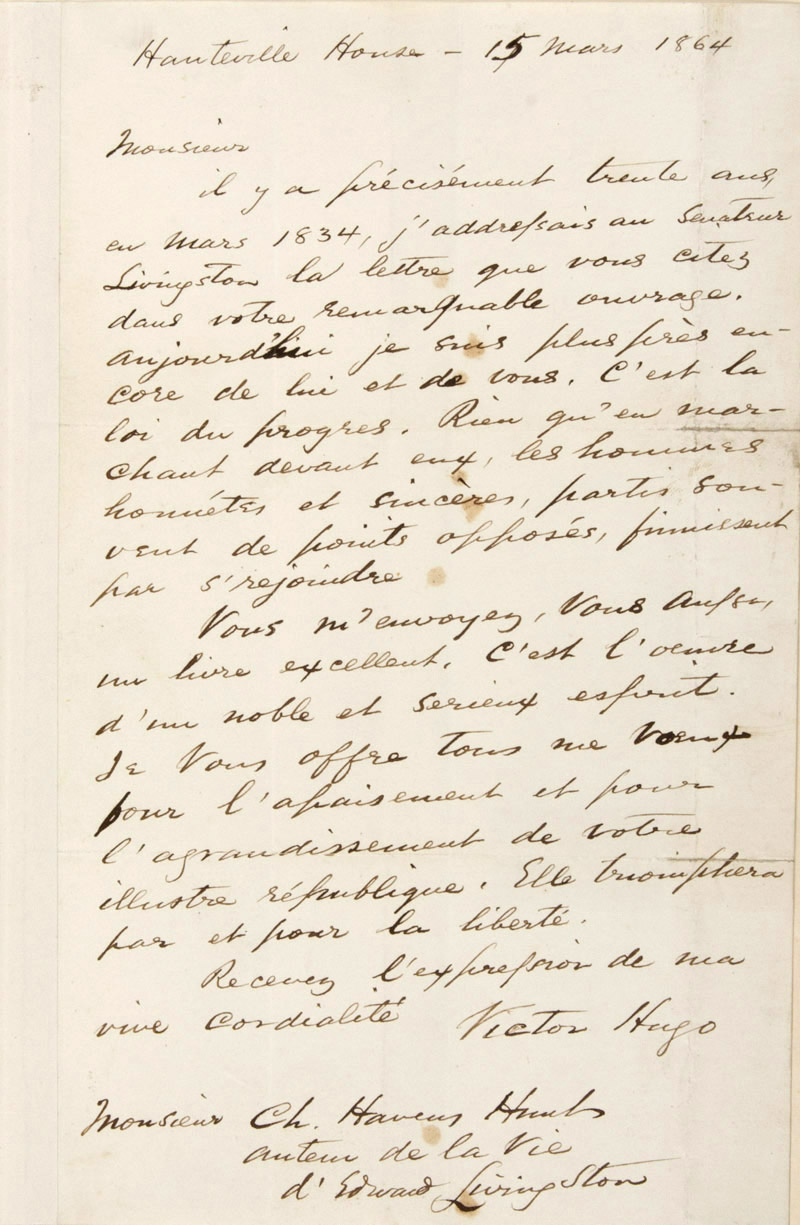 Hauteville House – 15 Mars 1864
Monsieur
il y a précisément trente ans,
en Mars 1834, j'addressais au Senateur
Livingston la lettre que vous citez
dans votre remarquable ouvrage.
aujourd'hui je suis plus près en-
core de lui et de vous. C'est la
loi du progres. Rien qu'en mar-
chant devant eux, les hommes
honnétes et sincères, partis sou-
vent de points opposés, finissent
par s'rejoindre
Vous m'envoyez, Vous aussi,
un livre excellent. C'est l'oeuvre
d'un noble et serieux esprit.
Je Vous offre tous me voeux
pour l'apaisement et pour
l'agrandissement de votre
illustre république. Elle triomphera
par et pour la liberté.
Recevez l'expression de ma
vive cordialité
Victor Hugo
Monsieur Ch. Havens Hunt
auteur de la Vie
d'Edward Livingston